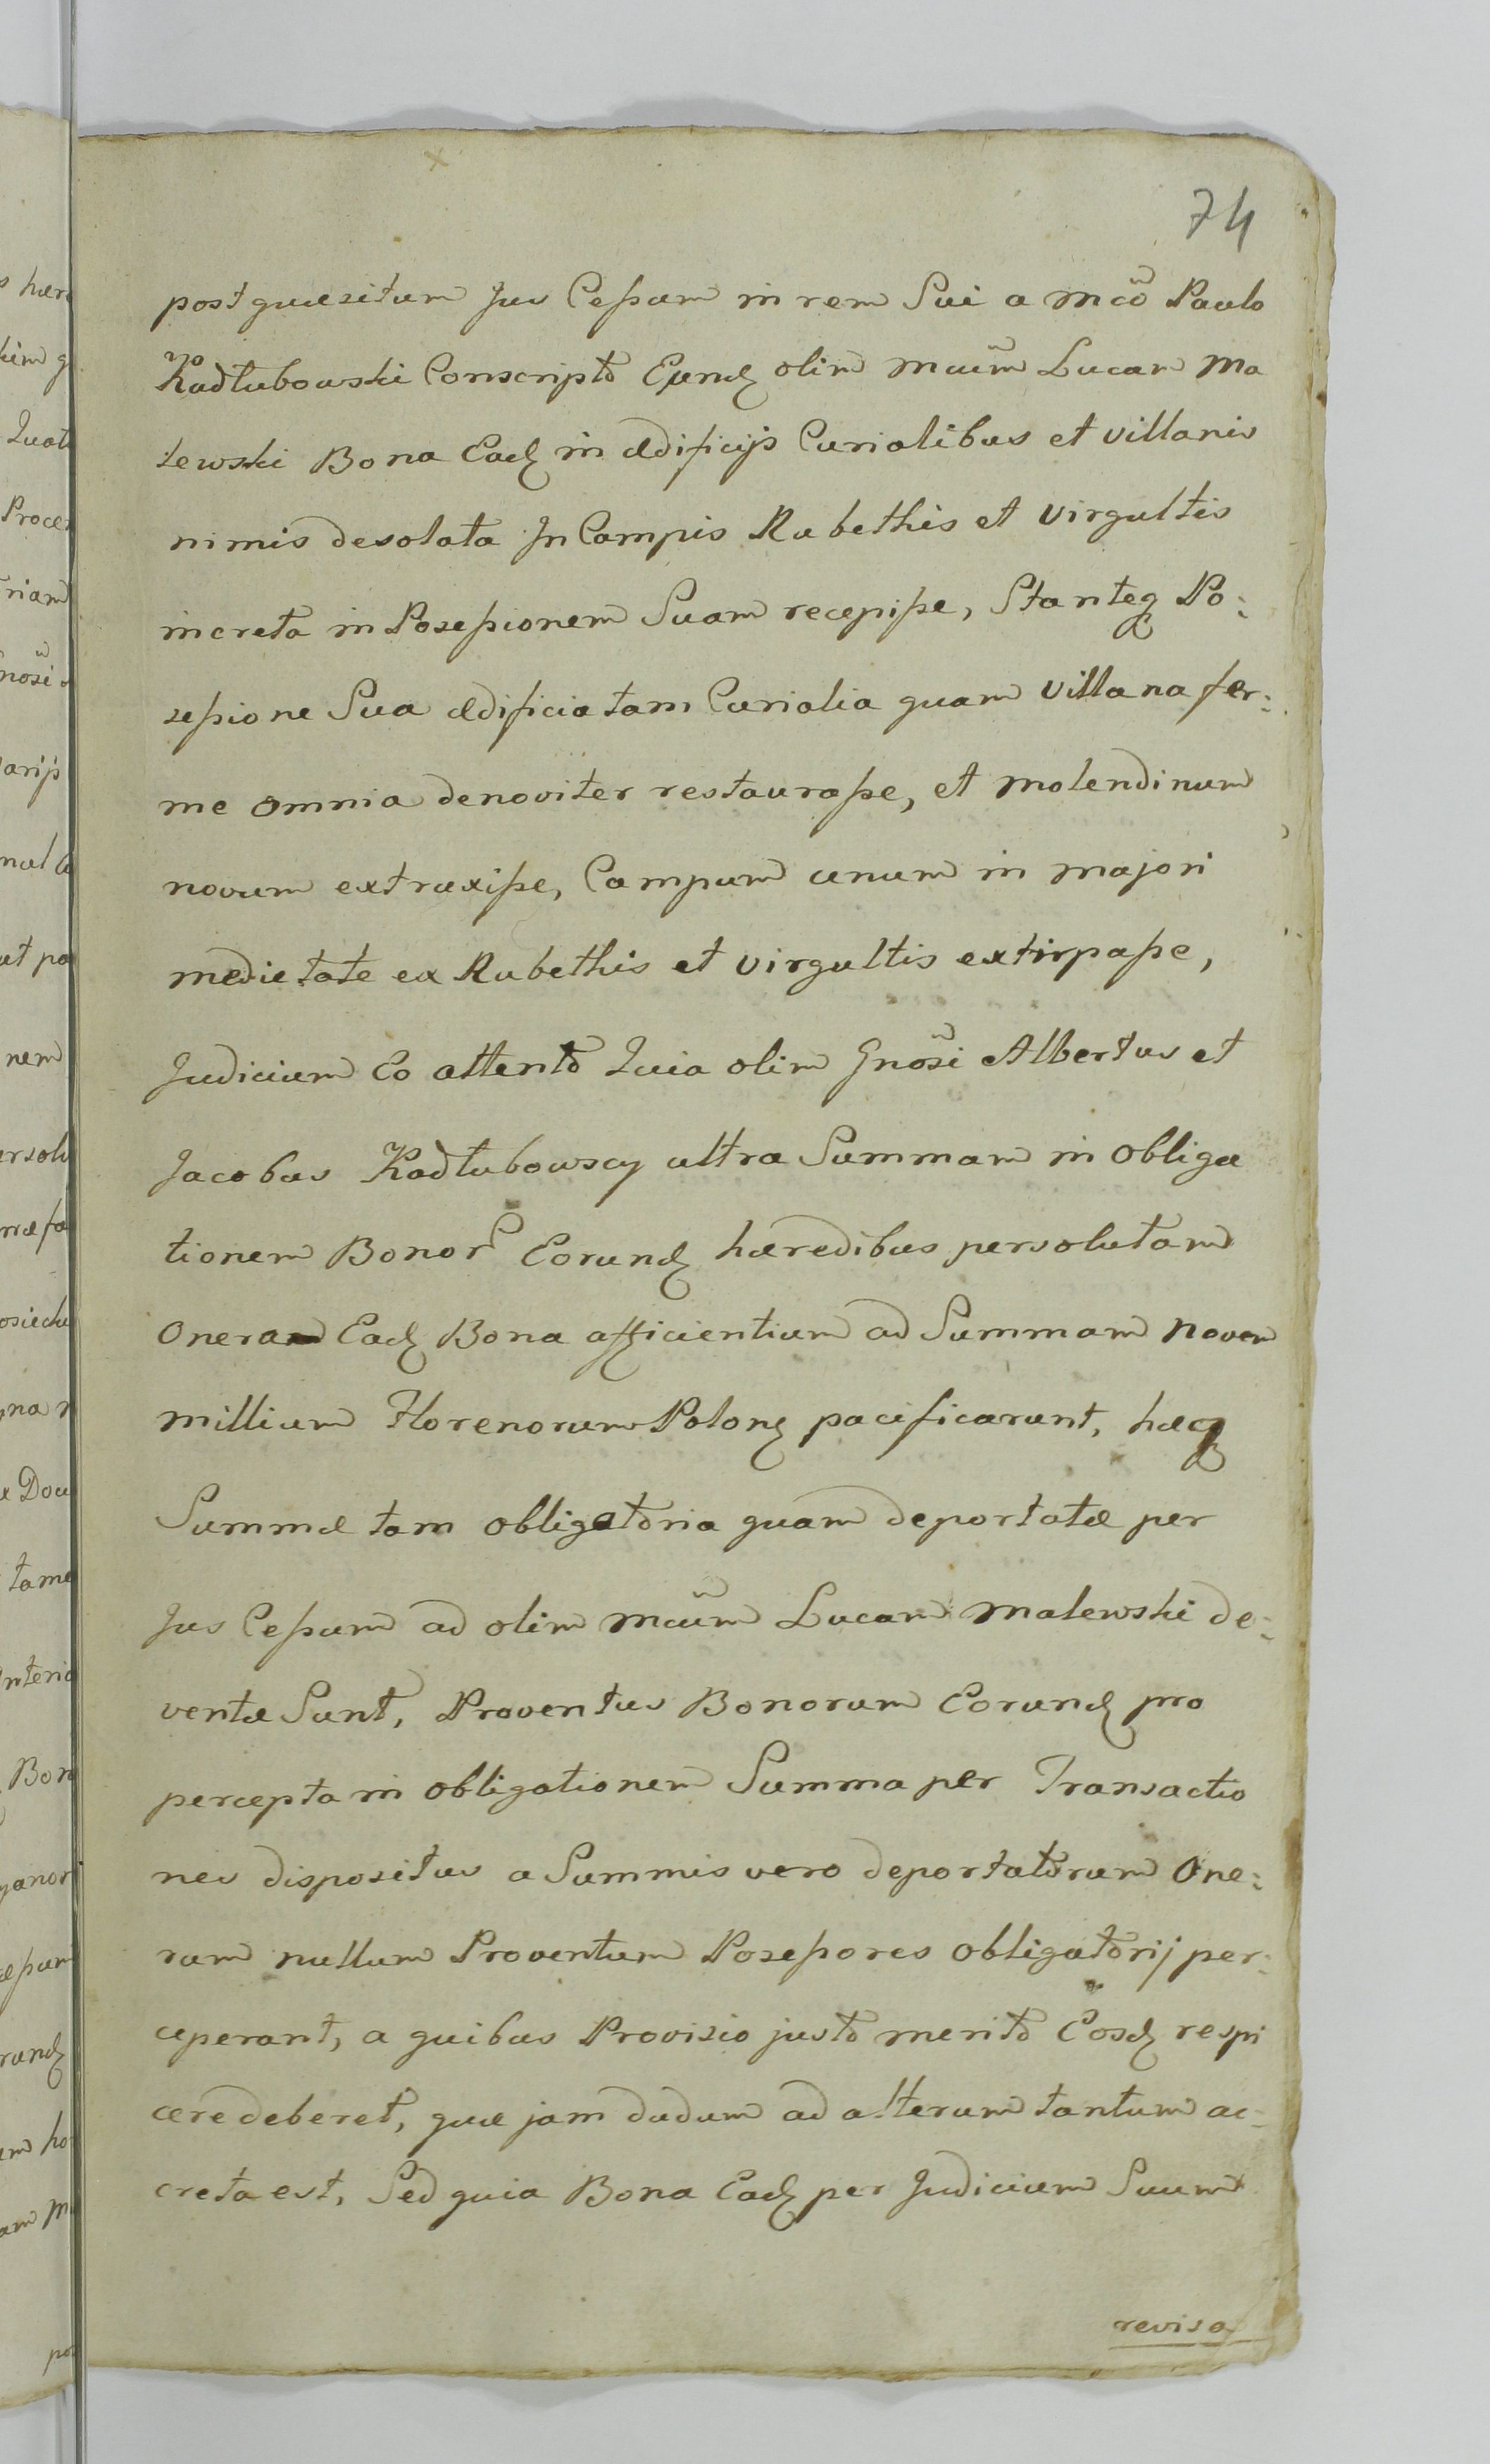 74
post quæsitum Jus Cessum in rem Sui a Mcõ Paulo
Kadłubowski Conscripto Eund olim Mcũm Lucam Ma
lewski Bona Ead in ædificijs Curialibus et villanis
nimis desolata In Campis Rubethis et virgultis
increta in Possessionem Suam recepisse, Stanteq Po:
sessione Sua ædificia tam Curialia quam villana fer:
me omnia denoviter restaurasse, et Molendinum
novum extruxisse, Campum unum in majori
medietate ex Rubethis et virgultis extirpasse,
Judicium Eo attento Quia olim Gnosi Albertus et
Jacobus Kadłubowscy ultra Summam in obliga
tionem Bonor Eorund hæredibus persolutam
Onera Ead Bona afficientium ad Summam Novem
millium Florenorum Polon pacificarunt, hæq
Summæ tam obligatoria quam deportatæ per
Jus Cessum ad olim Mcũm Lucam Malewski de:
ventæ Sunt, Proventus Bonorum Eorund pro
percepta in obligationem Summa per Transactio
nes dispositus a Summis vero deportatorum One:
rum nullum Proventum Posessores obligatorij per:
ceperant, a quibus Provisio justo merito Eosd respi
cere deberet, quæ jam dudum ad alterum tantum ac:
creta est, Sed quia Bona Ead per Judicium Suum
revisa